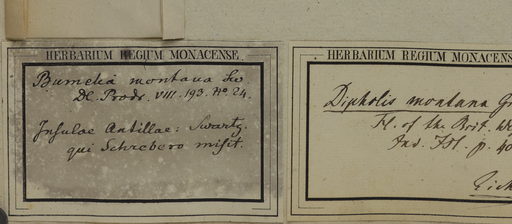 HERBARIUM REGIUM MONACENSE.
Bumelia montana Sw
DC. Prodr. VIII. 193. No. 24.
Insulae Antillae: Swartz,
qui Schrebero misit.
HERBARIUM REGIUM MONACENS
Dipholis montana Gr
Fl. of the Brit. We
Ind. Isl. p. 40